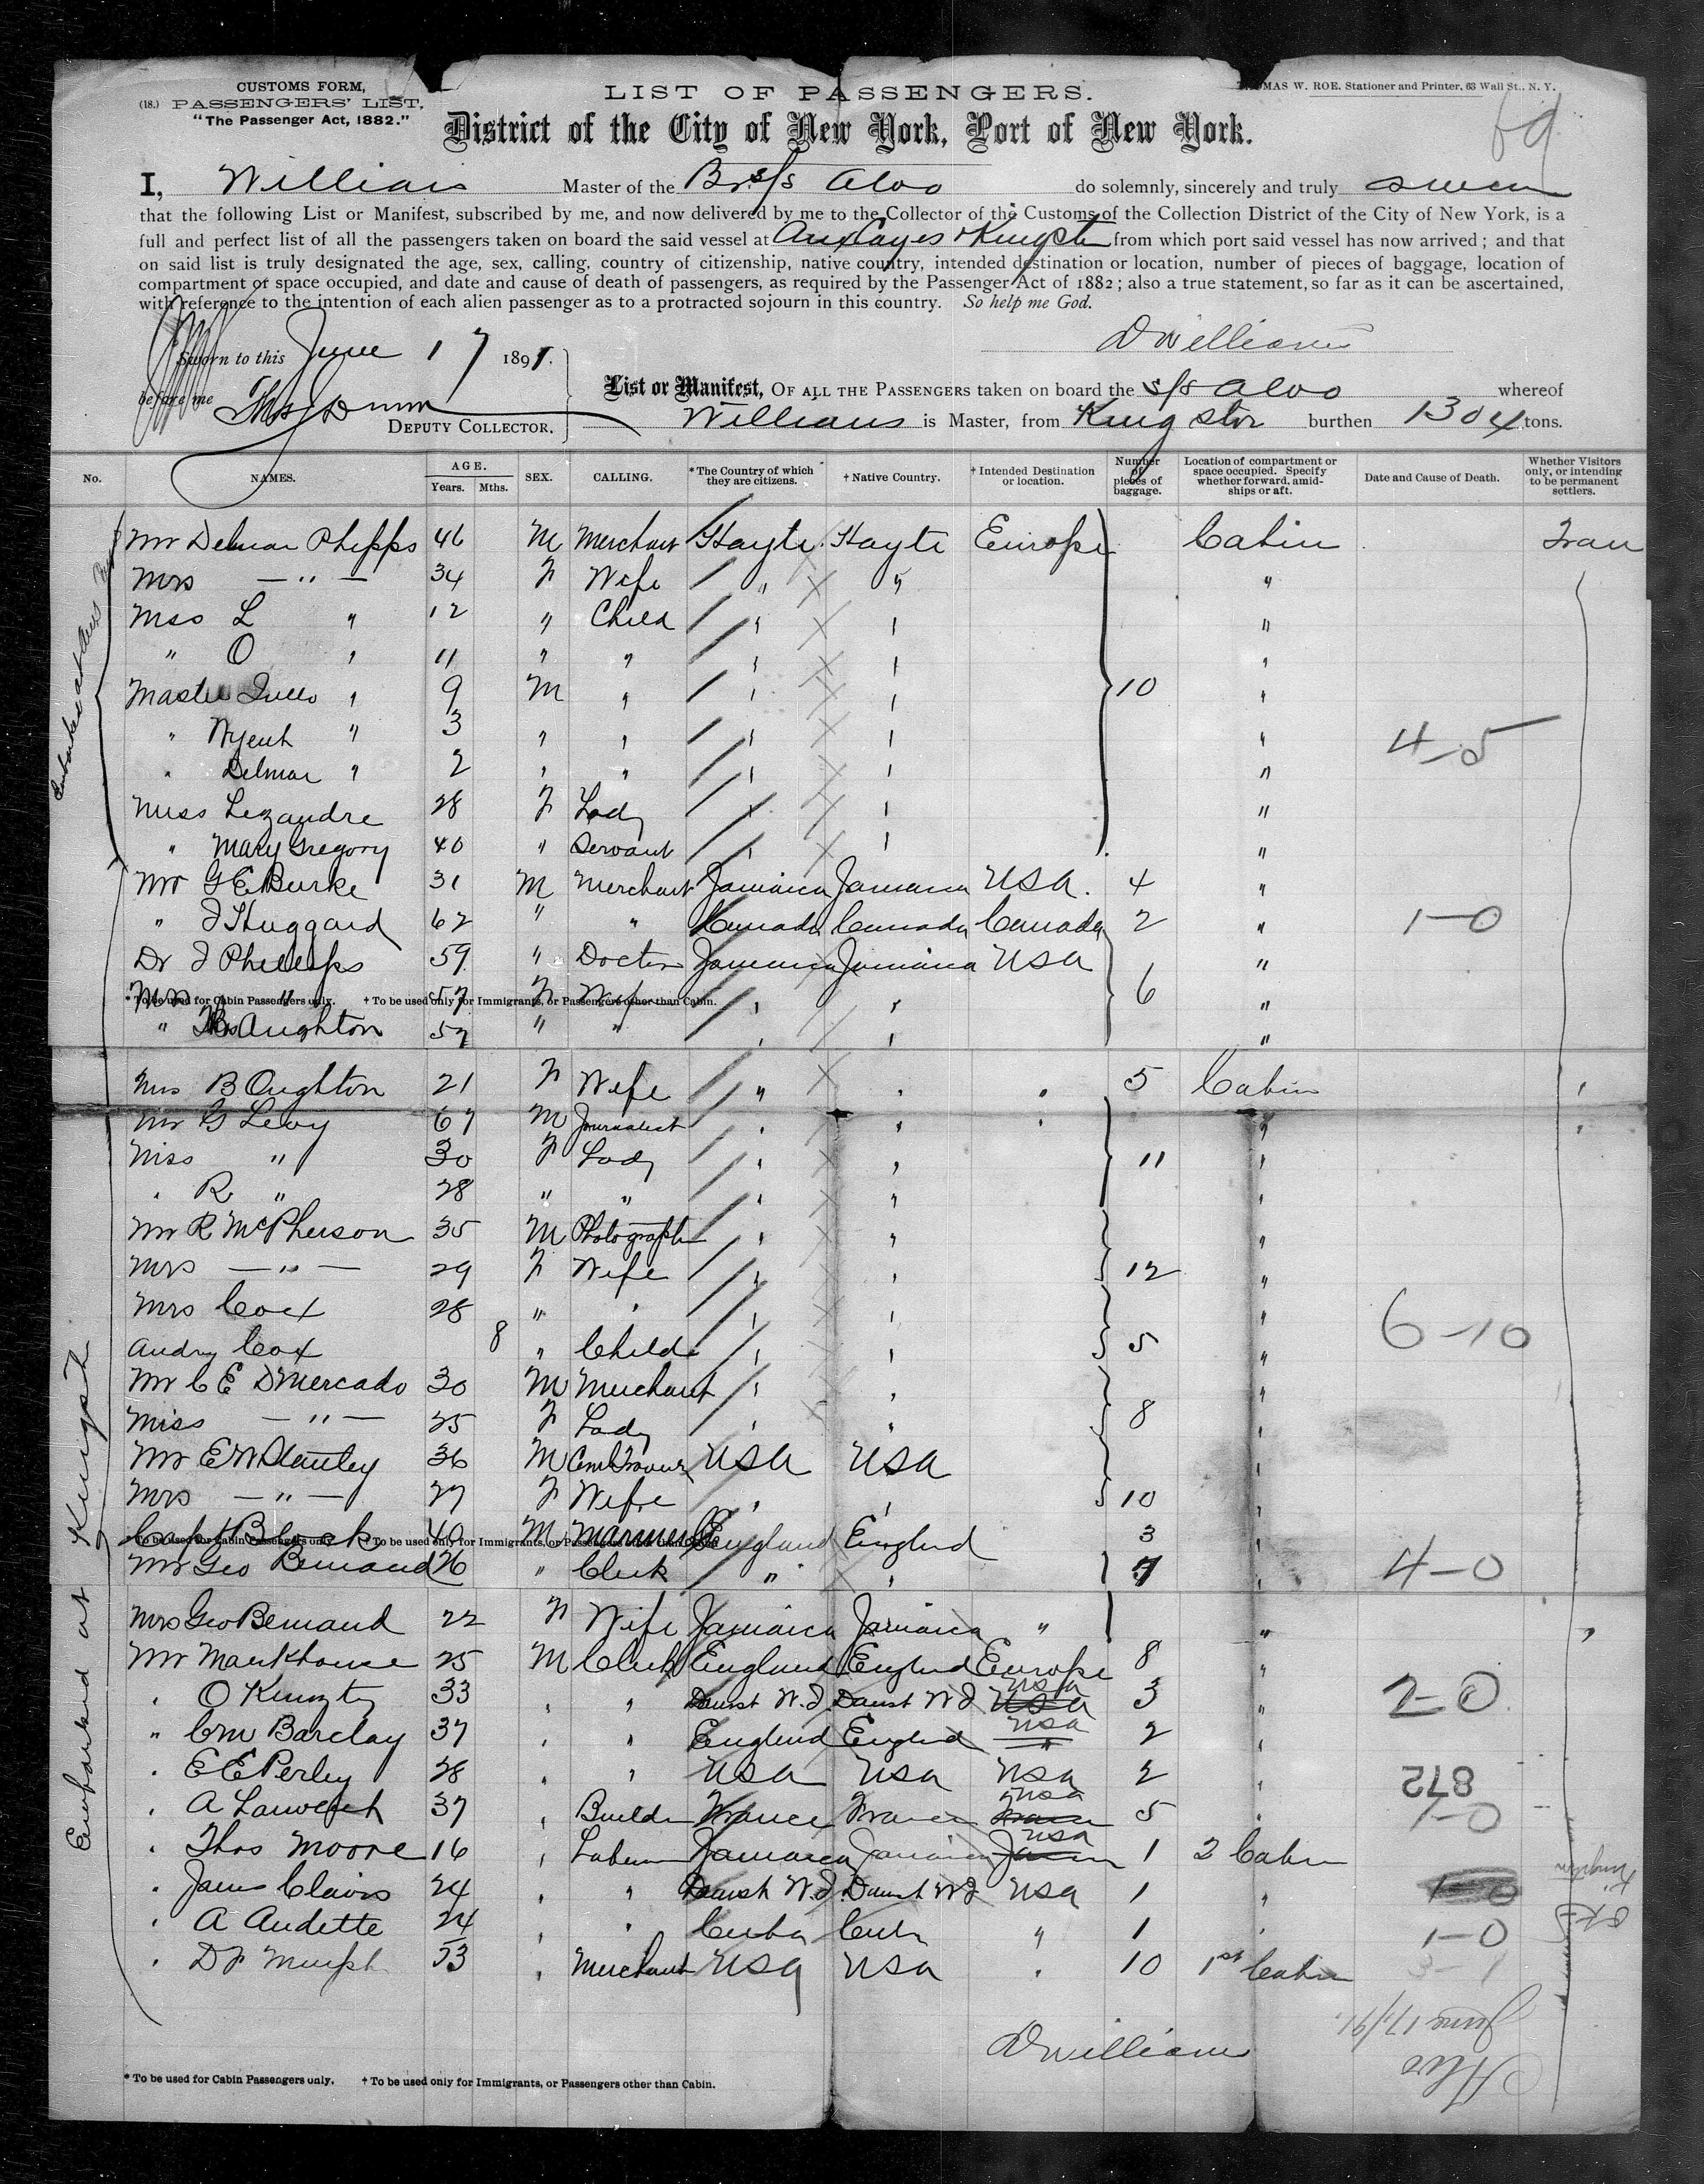 CUSTOMS FORM,
(18.) PASSENGERS' LIST,
"The Passenger Act, 1882."
LIST OF PASSENGERS.
THOMAS W. ROE. Stationer and Printer, 63 Wall St., N. Y.
District of the City of New York, Port of New York.
69
I, Williams Master of the Br s/s Alvo do solemnly, sincerely and truly swear
that the following List or Manifest, subscribed by me, and now delivered by me to the Collector of the Customs of the Collection District of the City of New York, is a
full and perfect list of all the passengers taken on board the said vessel at Aux Cayes & Kingston from which port said vessel has now arrived; and that
on said list is truly designated the age, sex, calling, country of citizenship, native country, intended destination or location, number of pieces of baggage, location of
compartment or space occupied, and date and cause of death of passengers, as required by the Passenger Act of 1882; also a true statement, so far as it can be ascertained,
with reference to the intention of each alien passenger as to a protracted sojourn in this country. So help me God.
D Williams
Sworn to this June 17 1891.
before me Thos Dunn
DEPUTY COLLECTOR.
List or Manifest, OF ALL THE PASSENGERS taken on board the s/s Alvo whereof
Williams is Master, from Kingston burthen 1304 tons.
No. NAMES. AGE. Years. Mths. SEX. CALLING. *The Country of which they are citizens. †Native Country. †Intended Destination or location. Number of pieces of baggage. Location of compartment or space occupied. Specify whether forward, amid-ships or aft. Date and Cause of Death. Whether Visitors only, or intending to be permanent settlers.
Mr Delmar Phipps 46 M Merchant Hayti Hayti Europe Cabin Tran
Mrs — " — 34 F Wife " " "
Miss L " 12 " Child " " "
" O " 11 " " " " "
Master " 9 M " " " 10 "
" " 3 " " " " " 4-5
" Delmar " 2 " " " " "
Miss Lezandre 28 F Lady " " "
" Mary Gregory 40 " Servant " " "
Mr G E Burke 31 M Merchant Jamaica Jamaica USA. 4 "
" J Huggard 62 " " Canada Canada Canada 2 " 1-0
Dr J Phillips 59 " Doctor Jamaica Jamaica USA "
Mrs " 57 F Wife " " 6 "
* To be used for Cabin Passengers only. † To be used only for Immigrants, or Passengers other than Cabin.
" Aughton 57 " " " " "
Mrs B Oughton 21 F Wife " " " 5 Cabin "
Mr G Levy 67 M Journalist " " " " "
Miss " 30 F Lady " " 11 "
" R " 28 " " " " "
Mr R McPherson 35 M Photographer " " "
Mrs — " — 29 F Wife " " 12 "
Mrs Cox 28 " " " " "
Audry Cox 8 " Child " " 5 " 6-10
Mr C E DMercado 30 M Merchant " " "
Miss — " — 25 F Lady " " 8 "
Mr E W Stanley 36 M USA USA "
Mrs — " — 27 F Wife " " 10 "
Capt Block 40 M Mariner England England 3 "
* To be used for Cabin Passengers only. † To be used only for Immigrants, or Passengers other than Cabin.
Mr Geo Bemand 26 " Clerk " " 7 " 4-0
Mrs Geo Bemand 22 F Wife Jamaica Jamaica " " "
Mr Monkhouse 25 M Clerk England England Europe 8 "
" O 33 " " Danish W.I. Danish W I USA 3 " 2-0
" Cm Barclay 37 " " England England USA 2 "
" E E Perley 28 " " USA USA USA 2 " 872
" A 37 " Builder France France USA 5 " 1-0
" Thos Moore 16 " Laborer Jamaica Jamaica USA 1 2 Cabin
" James 24 " " Danish W.I. Danish W I USA 1 " 1-0
" A Audette 24 " " Cuba Cuba " 1 " 1-0
" D F 53 " Merchant USA USA " 10 1st Cabin 3-1
D Williams
June 17/91.
Alvo
Embarked at Kingston
* To be used for Cabin Passengers only. † To be used only for Immigrants, or Passengers other than Cabin.